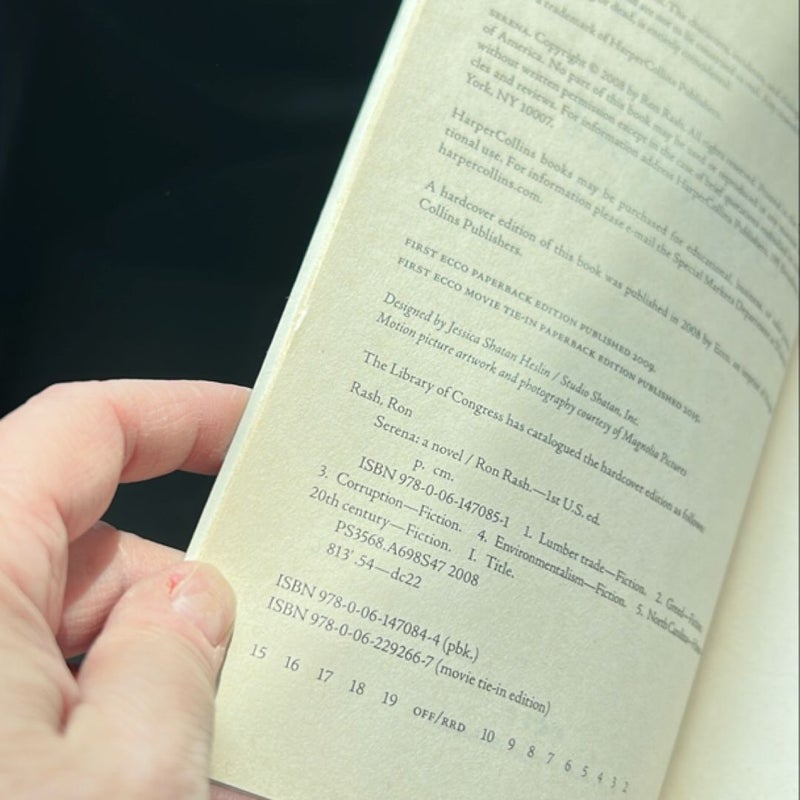 SERENA. Copyright © 2008 by Ron Rash. All rights reserved.
of America. No part of this book may be used or reproduced in any
without written permission except in the case of brief
cles and reviews. For information address HarperCollins Publishers,
York, NY 10007.
HarperCollins books may be purchased for educational, business, or
tional use. For information please e-mail the Special Markets Department
harpercollins.com.
A hardcover edition of this book was published in 2008 by Ecco, an imprint of
Collins Publishers.
FIRST ECCO PAPERBACK EDITION PUBLISHED 2009.
FIRST ECCO MOVIE TIE-IN PAPERBACK EDITION PUBLISHED 2015.
Designed by Jessica Shatan Heslin / Studio Shatan, Inc.
Motion picture artwork and photography courtesy of Magnolia Pictures
The Library of Congress has catalogued the hardcover edition as follows:
Rash, Ron
Serena: a novel / Ron Rash.—1st U.S. ed.
p. cm.
ISBN 978-0-06-147085-1 1. Lumber trade—Fiction. 2. Greed—Fiction.
3. Corruption—Fiction. 4. Environmentalism—Fiction. 5. North Carolina—
20th century—Fiction. I. Title.
PS3568.A698S47 2008
813'.54—dc22
ISBN 978-0-06-147084-4 (pbk.)
ISBN 978-0-06-229266-7 (movie tie-in edition)
15 16 17 18 19 OFF/RRD 10 9 8 7 6 5 4 3 2